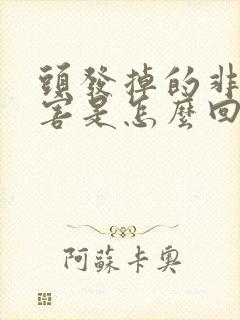 頭發掉的非
害是怎麼回
阿蘇卡奧